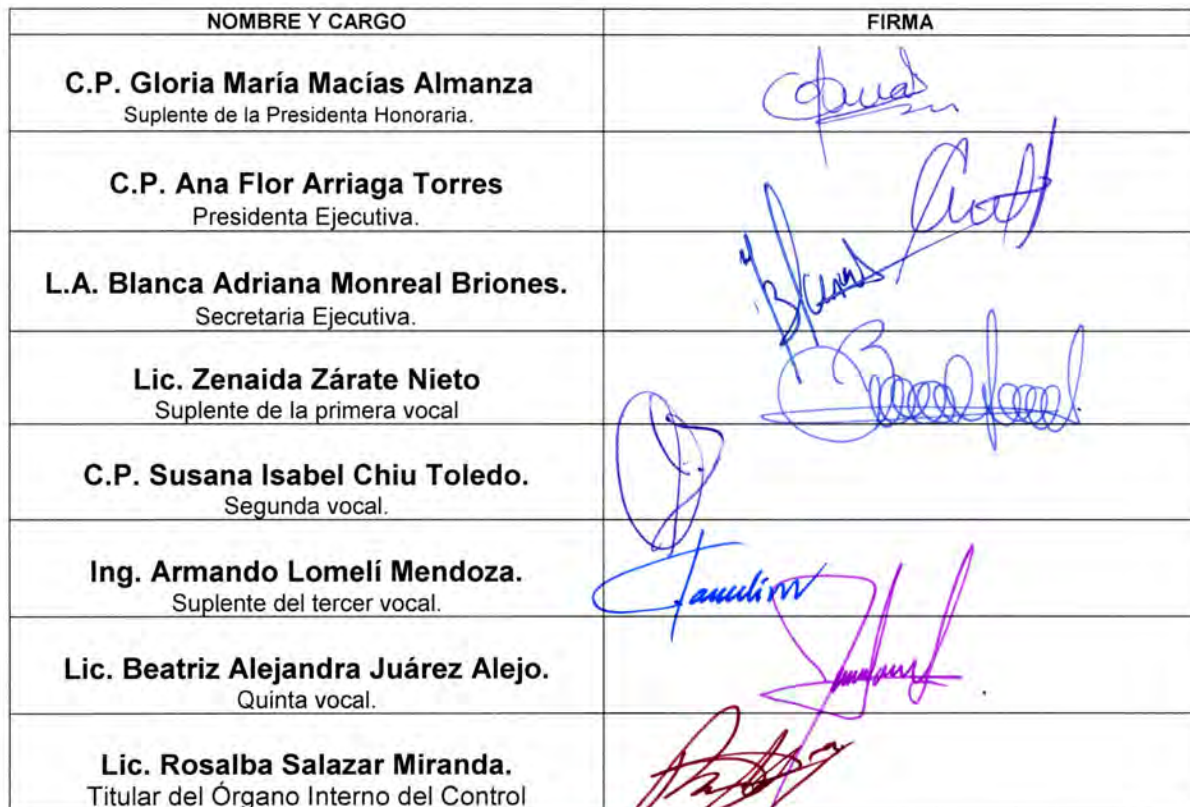 NOMBRE Y CARGO FIRMA
C.P. Gloria María Macías Almanza
Suplente de la Presidenta Honoraria.
C.P. Ana Flor Arriaga Torres
Presidenta Ejecutiva.
L.A. Blanca Adriana Monreal Briones.
Secretaria Ejecutiva.
Lic. Zenaida Zárate Nieto
Suplente de la primera vocal
C.P. Susana Isabel Chiu Toledo.
Segunda vocal.
Ing. Armando Lomelí Mendoza.
Suplente del tercer vocal.
Lic. Beatriz Alejandra Juárez Alejo.
Quinta vocal.
Lic. Rosalba Salazar Miranda.
Titular del Órgano Interno del Control